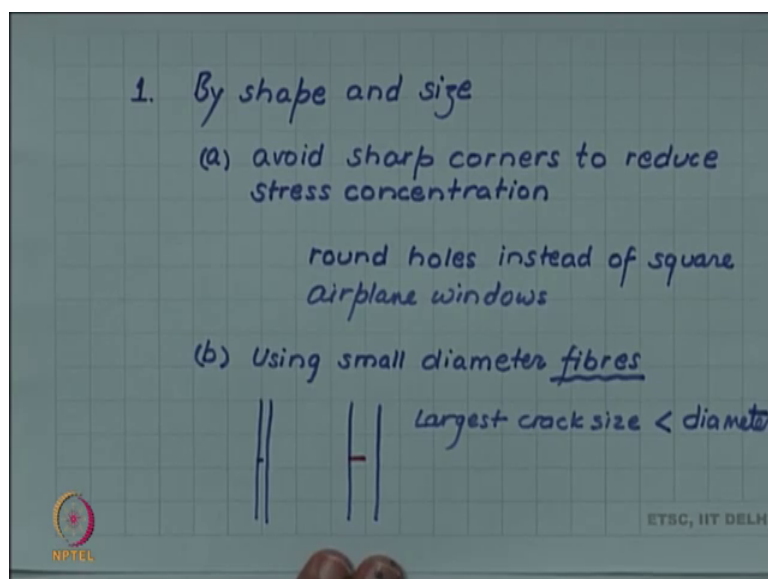 1. By shape and size
(a) avoid sharp corners to reduce
stress concentration
round holes instead of square
airplane windows
(b) Using small diameter fibres
Largest crack size < diamete
ETSC, IIT DELH
NPTEL